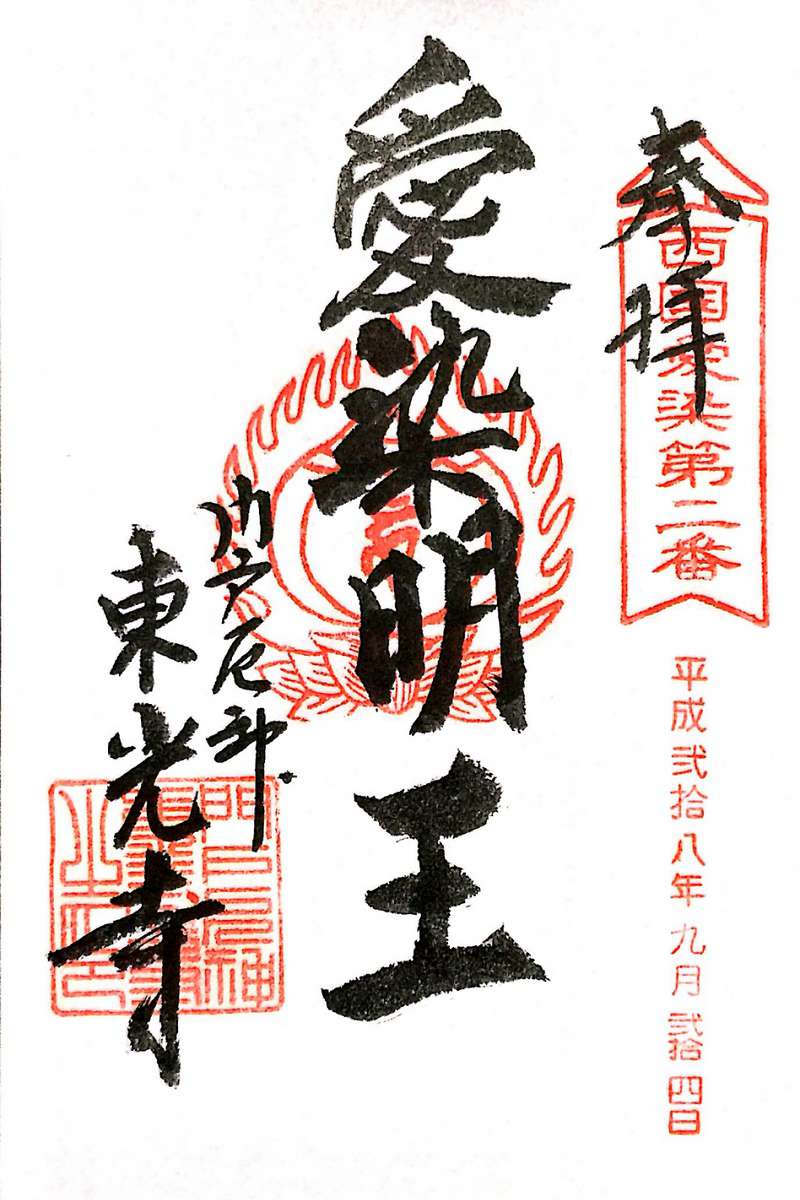 奉拝
西国愛染第二番
平成弐拾八年九月弐拾四日
愛染明王
門戸厄神
東光寺